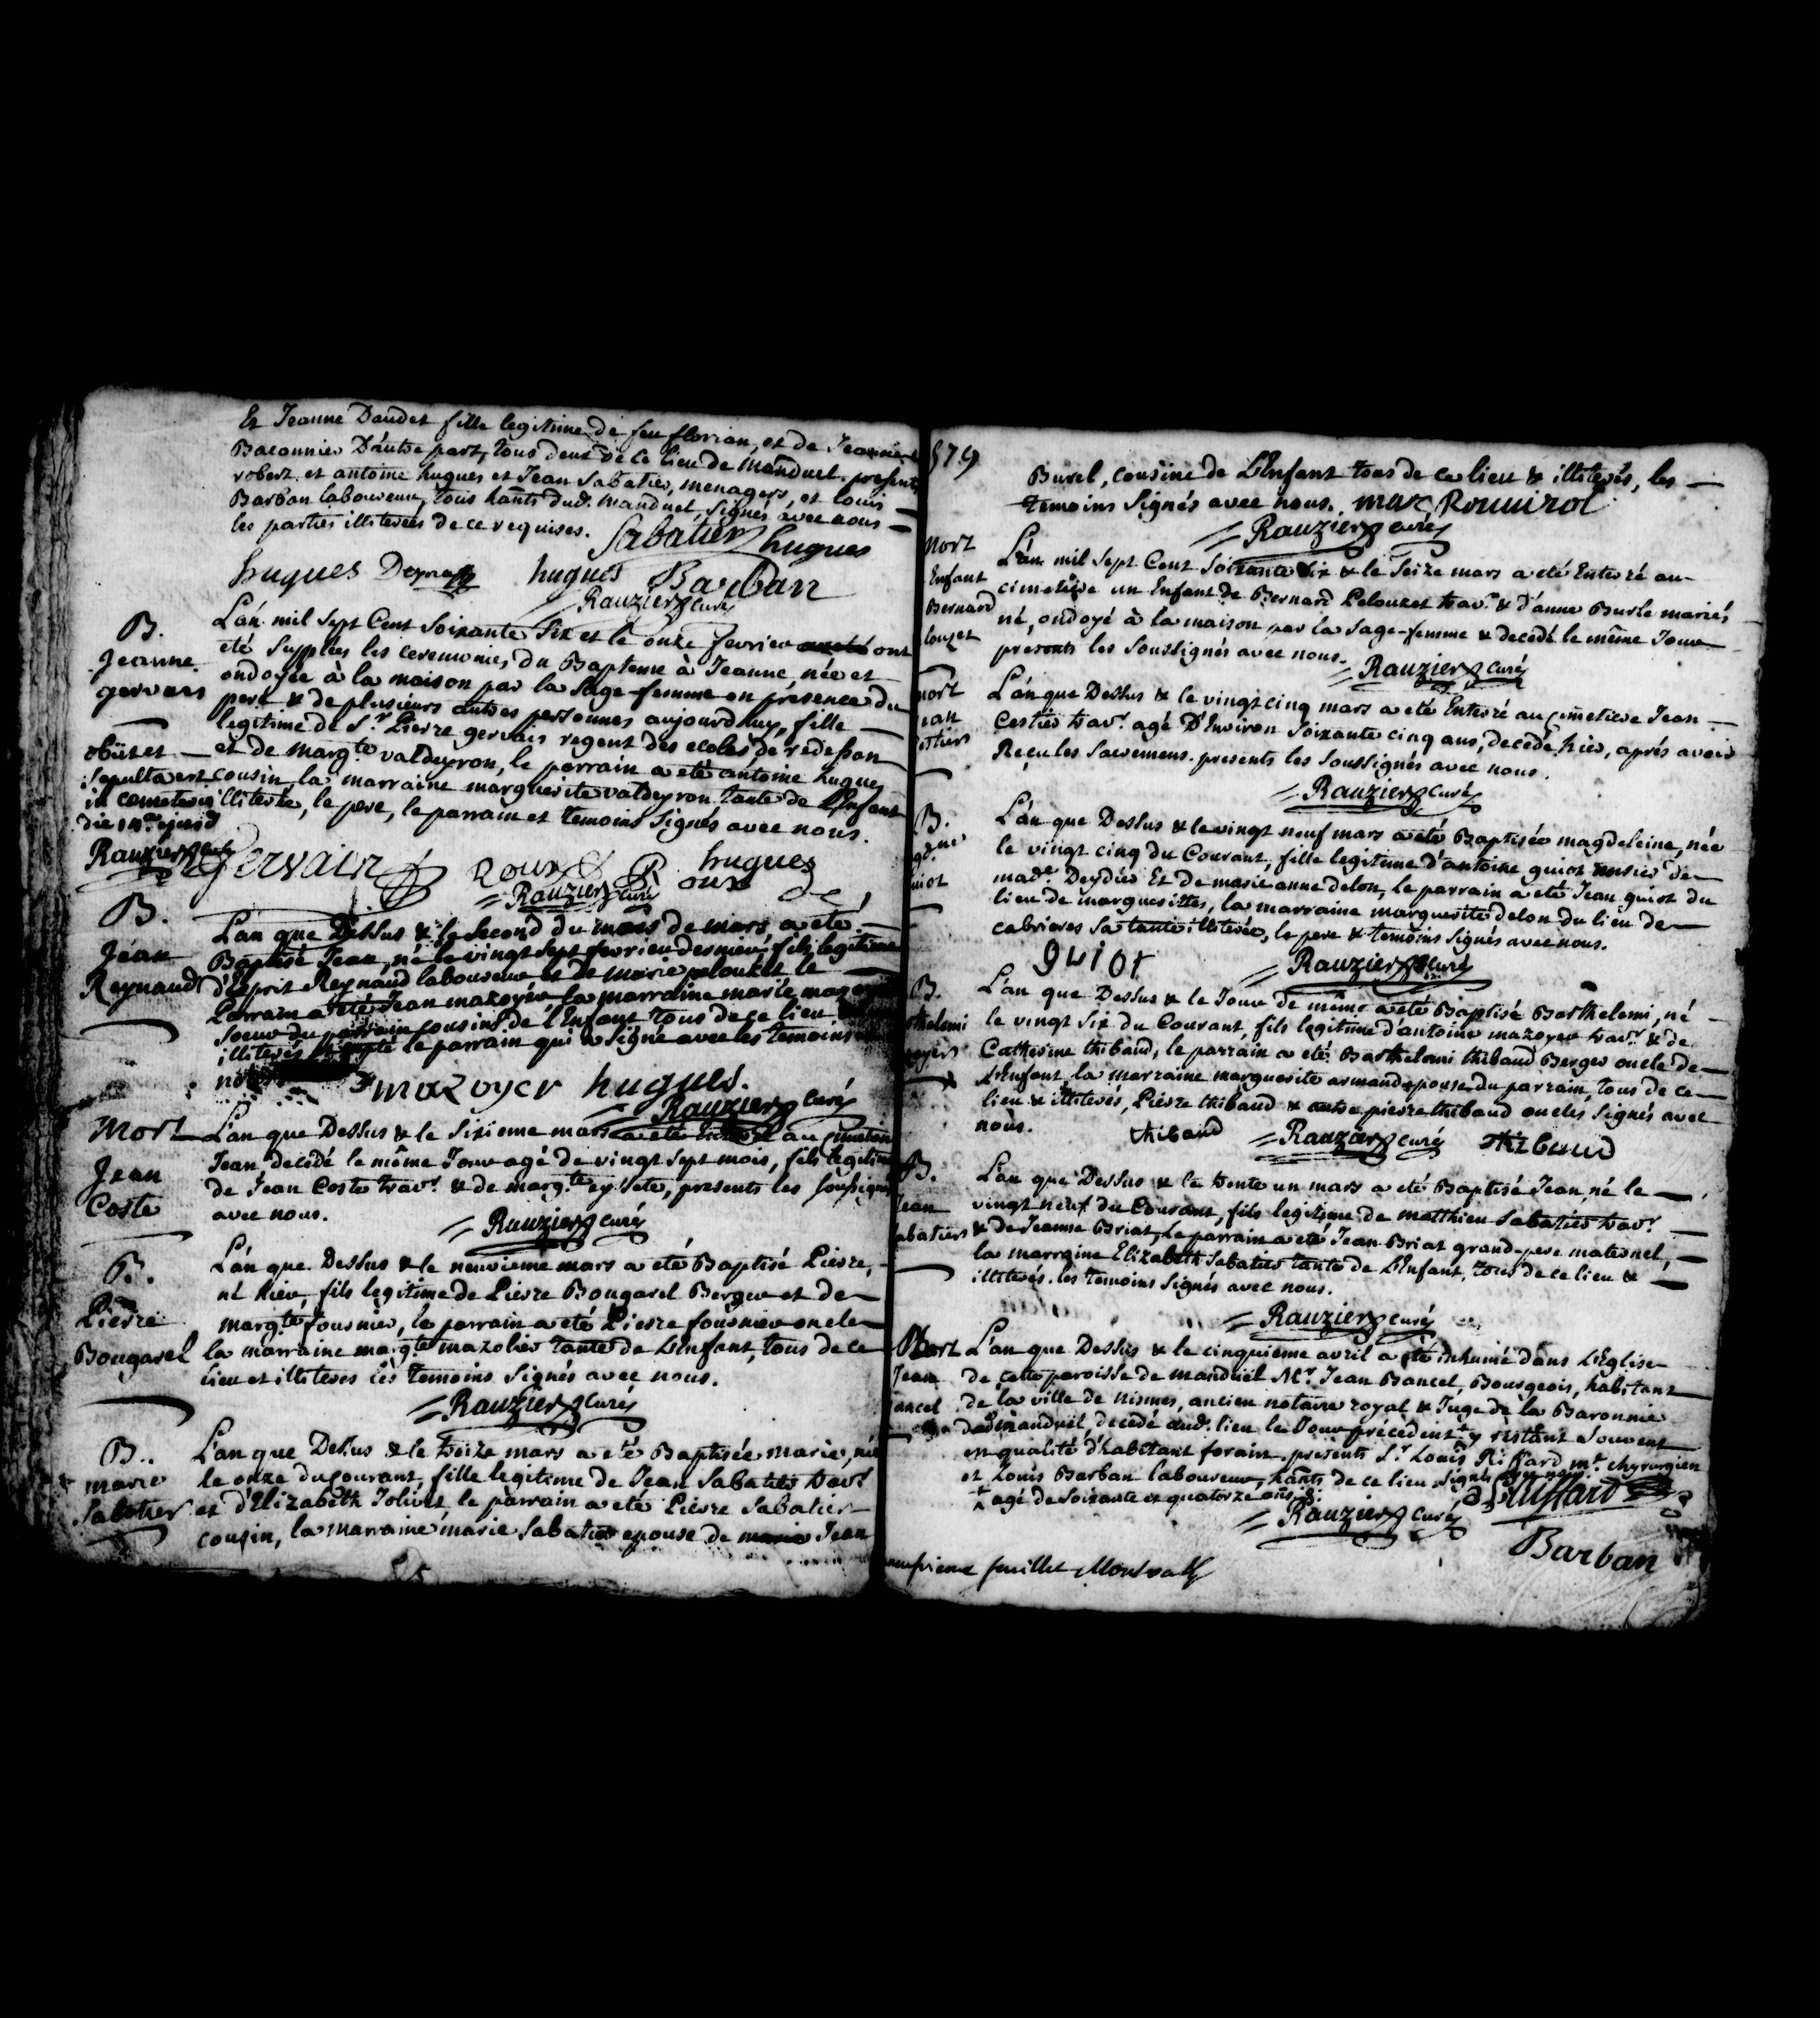 Et Jeanne Daudet fille legitime de feu florian, et de Jeanne
Baconnier D'autre part, tous deux de ce lieu de Manduel. presents
robert et antoine hugues et Jean Sabatier, menagers, et louis
Barban laboureur, tous hants dud. Manduel, signés avec nous
les parties illiterées de ce requises. Sabatier hugues
hugues hugues Barban
Rauzier curé
B.
Jeanne
gervais
L'an mil sept Cent soixante six et le onze fevrier ont
eté supplées les ceremonies du Bapteme à Jeanne, née et
ondoyée à la maison par la sage-femme en présence du
pere & de plusieurs autres personnes aujourdhuy, fille
legitime de Sr. Pierre gervais regent des ecoles de redessan
et de margte. valdeyron, le parrain a eté antoine hugues
cousin, la marraine marguerite valdeyron tante de L'Enfant
illiterée, le pere, le parrain et temoins signés avec nous.
obiit et
sepulta est
in cemeterio
die 14a. ejusd
Rauzier curé
Gervais Roux Roux hugues
Rauzier curé
B.
Jean
Reynaud
L'an que Dessus & le second du mois de mars a eté
Baptisé Jean, né le vingt sept fevrier dernier, fils legitime
d'Esprit Reynaud laboureur et de marie pelouzet le
Parrain a été Jean mazoyer la marraine marie
soeur du parrain cousins de l'Enfant tous de ce lieu
illiterés le parrain qui a signé avec les temoins
mazoyer hugues.
Rauzier curé
Mort
Jean
Coste
L'an que Dessus & le sixieme mars a eté Enterré au cimetiere
Jean, decédé le même Jour agé de vingt sept mois, fils legitime
de Jean Coste travr. & de margte. , presents les soussignés
avec nous.
Rauzier curé
B.
Pierre
Bougarel
L'an que Dessus & le neuvieme mars a eté Baptisé Pierre,
né hier, fils legitime de Pierre Bougarel Berger et de
margte. fournier, le parrain a eté Pierre fournier oncle
la marraine margte. mazolier tante de L'Enfant, tous de ce
lieu et illiterés les temoins signés avec nous.
Rauzier curé
B.
marie
Sabatier
L'an que Dessus & le treize mars a eté Baptisée marie, née
le onze du Courant, fille legitime de Jean Sabatier travr.
et d'Elizabeth Jolivet le parrain a eté Pierre Sabatier
cousin, la marraine marie Sabatier epouse de Jean
579
Burel, cousine de L'Enfant tous de ce lieu & illiterés, les
temoins signés avec nous. marc Rouvirol
Rauzier curé
Mort
Enfant
Bernard
louzet
L'an mil sept Cent soixante six & le seize mars a eté Enterré au
cimetiere un Enfant de Bernard Pelouzet travr. & d'anne Burle mariés
né, ondoyé à la maison par la sage-femme & decedé le même Jour
presents les soussignés avec nous.
Rauzier curé
mort
ean
estier
L'an que Dessus & le vingt cinq mars a eté Enterré au cimetiere Jean
Cestier travr. agé D'Environ soixante cinq ans, decedé hier, aprés avoir
Reçu les sacremens. presents les soussignés avec nous.
Rauzier curé
B.
uiot
L'an que Dessus & le vingt neuf mars a eté Baptisée magdeleine, née
le vingt cinq du Courant, fille legitime d'antoine guiot de
made. Deydier Et de marie anne delon, Le parrain a eté Jean guiot du
lieu de marguerittes, la marraine marguerite delon du lieu de
cabrieres sa tante illiterée, le pere & temoins signés avec nous.
guiot
Rauzier curé
B.
thelemi
L'an que Dessus & le Jour de même a eté Baptisé Barthelemi, né
le vingt six du Courant, fils legitime d'antoine mazoyer travr. & de
Catherine thibaud, le parrain a eté Barthelemi thibaud Berger oncle de
L'Enfant, la marraine marguerite armand epouse du parrain, tous de ce
lieu & illiterés, Pierre thibaud & autre pierre thibaud oncles signés avec
nous.
thibaud Rauzier curé thibaud
B.
Jean
abatier
L'an que Dessus & le trente un mars a eté Baptisé Jean, né le
vingt neuf du Courant, fils legitime de matthieu Sabatier travr.
& de Jeanne Briat, Le parrain a eté Jean Briat grand-pere maternel,
la marraine Elizabeth Sabatier tante de L'Enfant, tous de ce lieu &
illiterés. les temoins signés avec nous.
Rauzier curé
Mort
Jean
ancel
L'an que Dessus & le cinquieme avril a eté inhumé dans L'Eglise
de cette paroisse de manduel Mr. Jean Bancel, Bourgeois, habitant
de la ville de nismes, ancien notaire royal & Juge de la Baronnie
de manduel, decedé aud. lieu le Jour précedent + y restant souvent
en qualité d'habitant forain. presents Sr. Louis Riffard me. chyrurgien
et Louis Barban laboureur, hants de ce lieu, signés avec nous.
+ agé de soixante et quatorze ans
Riffard
Rauzier curé
Barban
feuillet